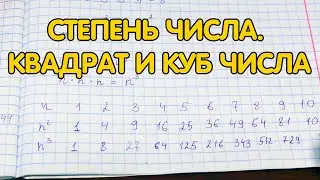 СТЕПЕНЬ ЧИСЛА.
КВАДРАТ И КУБ ЧИСЛА
n · n · n = n³
n 1 2 3 4 5 6 7 8 9 10
n² 1 4 9 16 25 36 49 64 81 10
n³ 1 8 27 64 125 216 343 512 729